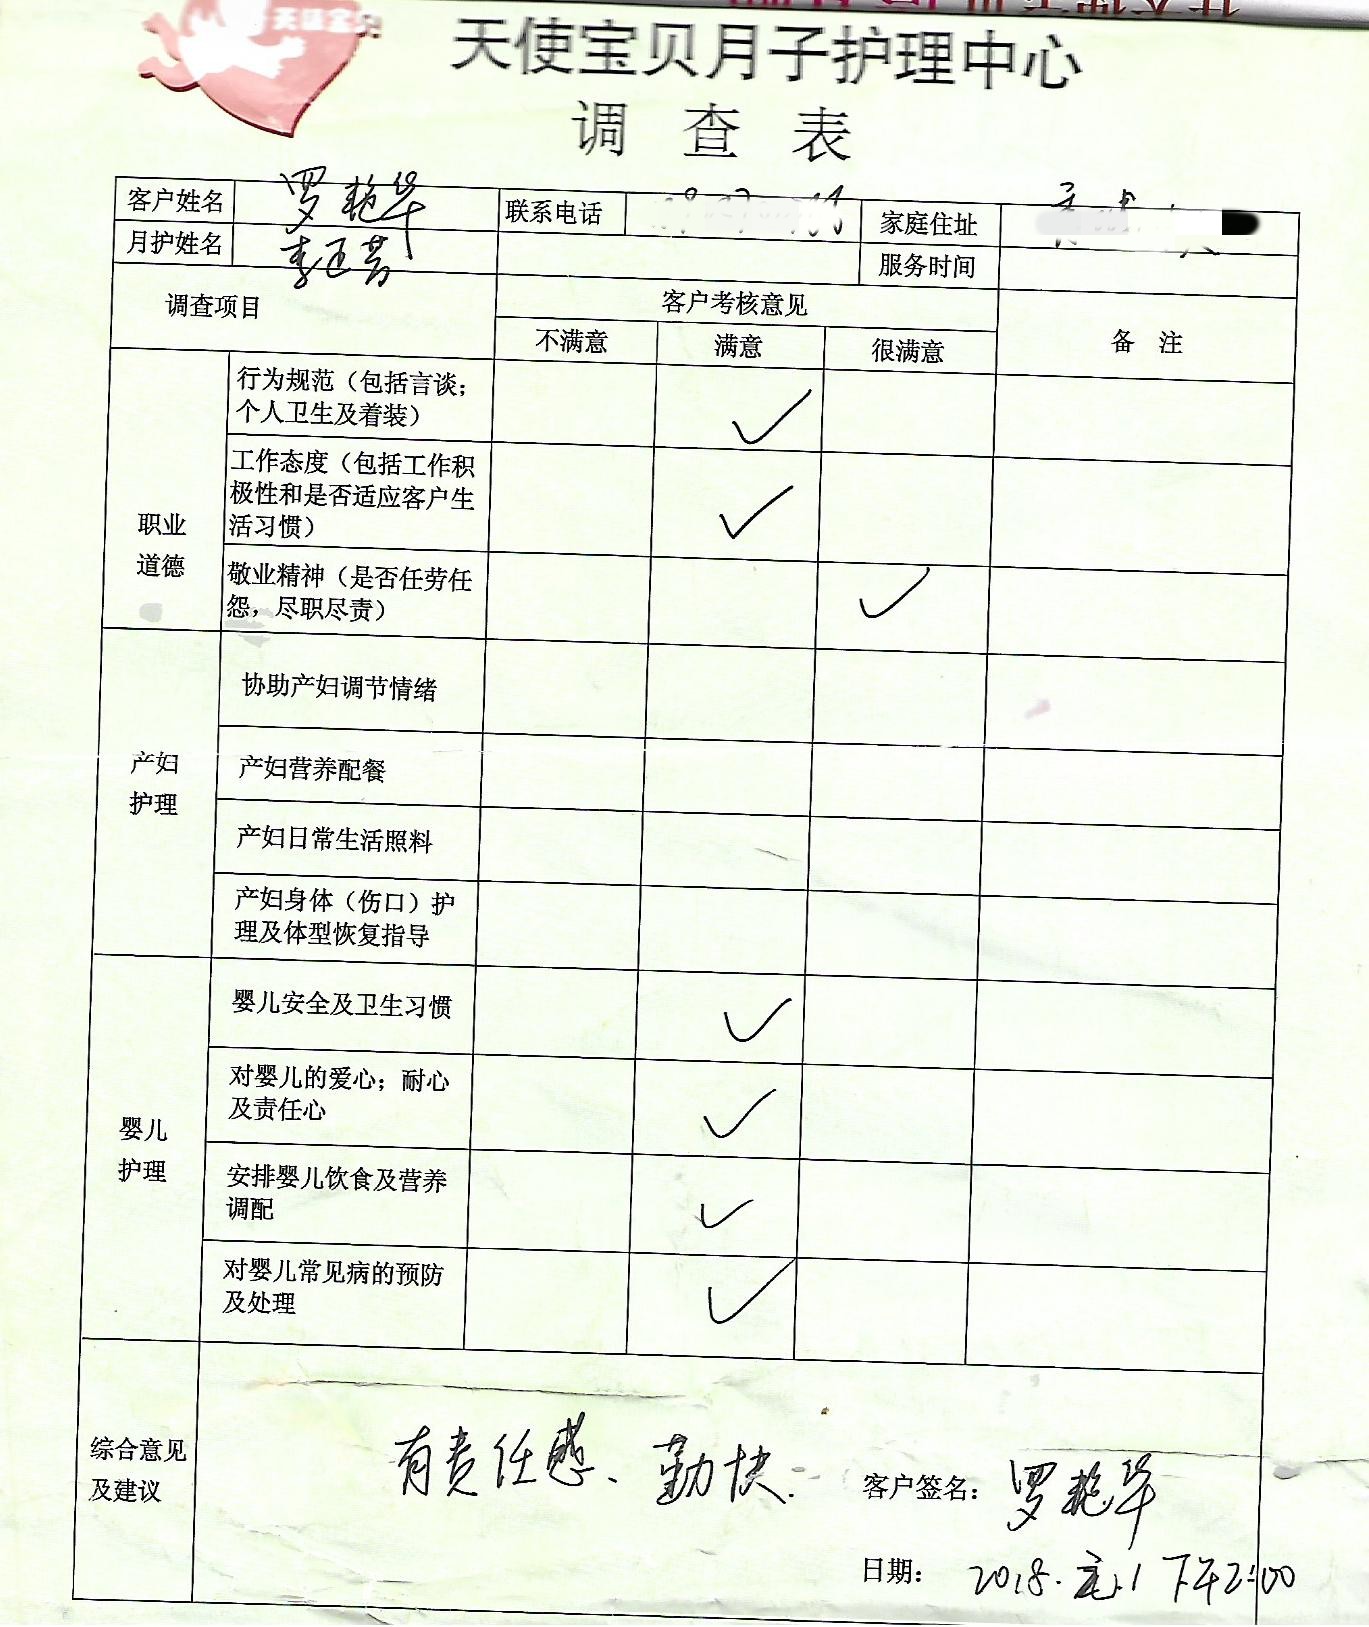 天使宝贝
天使宝贝月子护理中心
调 查 表
客户姓名 罗艳华 联系电话 家庭住址
月护姓名 李 服务时间
调查项目 客户考核意见 备 注
不满意 满意 很满意
职业
道德
行为规范（包括言谈；
个人卫生及着装）
工作态度（包括工作积
极性和是否适应客户生
活习惯）
敬业精神（是否任劳任
怨，尽职尽责）
产妇
护理
协助产妇调节情绪
产妇营养配餐
产妇日常生活照料
产妇身体（伤口）护
理及体型恢复指导
婴儿
护理
婴儿安全及卫生习惯
对婴儿的爱心；耐心
及责任心
安排婴儿饮食及营养
调配
对婴儿常见病的预防
及处理
综合意见
及建议
有责任感、勤快.
客户签名：罗艳华
日期： 2018. .1 下午2:00